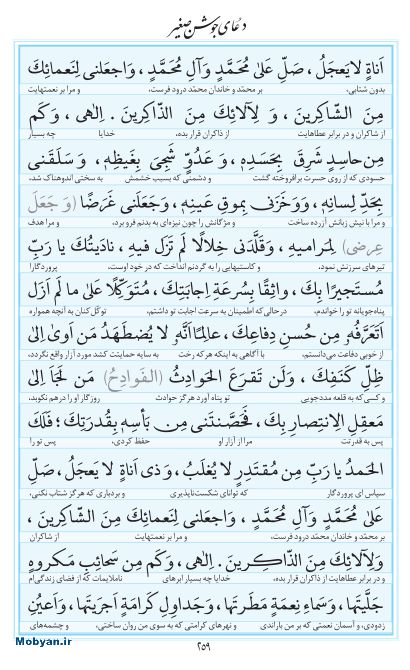 دعای جوشن صغیر
اَناةٍ لا یَعجَلُ، صَلِّ عَلیٰ مُحَمَّدٍ وَآلِ مُحَمَّدٍ، وَاجعَلنی لِنَعمائِكَ
بدون شتابی، بر محمّد و خاندان محمّد درود فرست، و مرا بر نعمتهایت
مِنَ الشّاکِرینَ، وَ لِآلائِكَ مِنَ الذّاکِرینَ . اِلٰهی، وَکَم
از شاکران و در برابر عطاهایت از ذاکران قرار بده، خدایا چه بسیار
مِن حاسِدٍ شَرِقَ بِحَسَدِهٖ، وَعَدُوٍّ شَجِیَ بِغَیظِهٖ، وَ سَلَقَنی
حسودی که از روی حسرت برافروخته گشت و دشمنی که بسبب خشمش به سختی اندوهناک شد،
بِحَدِّ لِسانِهٖ، وَوَخَزَنی بِموقِ عَینِهٖ، وَجَعَلَنی غَرَضًا (وَ جَعَلَ
و مرا با نیش زبانش آزرده ساخت و مژگانش را چون نیزه‌ای به بدنم فرو برد، و مرا هدف
عِرضی) لِمَرامیهِ، وَقَلَّدَنی خِلالًا لَم تَزَل فیهِ، نادَیتُكَ یا رَبِّ
تیرهای سرزنش نمود، و کاستیهایی را به گردنم انداخت که در خود اوست، پروردگارا
مُستَجیرًا بِكَ، واثِقًا بِسُرعَةِ اِجابَتِكَ، مُتَوَکِّلًا عَلیٰ ما لَم اَزَل
پناه‌جویانه تو را خواندم، درحالی که اطمینان به سرعت اجابت تو داشتم، توکل کنان به آنچه همواره
اَتَعَرَّفُهٗ مِن حُسنِ دِفاعِكَ، عالِمًا اَنَّهٗ لا یُضطَهَدُ مَن اَویٰ اِلیٰ
از خوبی دفاعت می‌دانستم، با آگاهی به اینکه هر که رخت به سایه حمایتت کشد مورد آزار واقع نگردد،
ظِلِّ کَنَفِكَ، وَلَن تَقرَعَ الحَوادِثُ (الفَوادِحُ) مَن لَجَاَ اِلیٰ
و کسی که به قلعه مددجویی تو پناه آورد هرگز حوادث روزگار او را درهم نکوبد،
مَعقِلِ الاِنتِصارِ بِكَ، فَحَصَّنتَنی مِن بَأسِهٖ بِقُدرَتِكَ؛ فَلَكَ
پس به قدرتت مرا از آزار او حفظ کردی، پس تو را
الحَمدُ یا رَبِّ مِن مُقتَدِرٍ لا یُغلَبُ، وَذی اَناةٍ لا یَعجَلُ، صَلِّ
سپاس ای پروردگار که توانای شکست‌ناپذیری و بردباری که هرگز شتاب نکنی،
عَلیٰ مُحَمَّدٍ وَآلِ مُحَمَّدٍ، وَاجعَلنی لِنَعمائِكَ مِنَ الشّاکِرینَ،
بر محمّد و خاندان محمّد درود فرست، و مرا بر نعمتهایت از شاکران
وَلِآلائِكَ مِنَ الذّاکِرینَ . اِلٰهی، وَکَم مِن سَحائِبِ مَکروهٍ
و در برابر عطاهایت از ذاکران قرار بده، خدایا چه بسیار ابرهای ناملایمات که از فضای زندگی‌ام
جَلَّیتَها، وَسَماءِ نِعمَةٍ مَطَرتَها، وَجَداوِلِ کَرامَةٍ اَجرَیتَها، وَاَعیُنِ
زدودی، و آسمان نعمتی که بر من باراندی و نهرهای کرامتی که به سوی من روان ساختی، و چشمه‌های
۲۵۹
Mobyan.ir